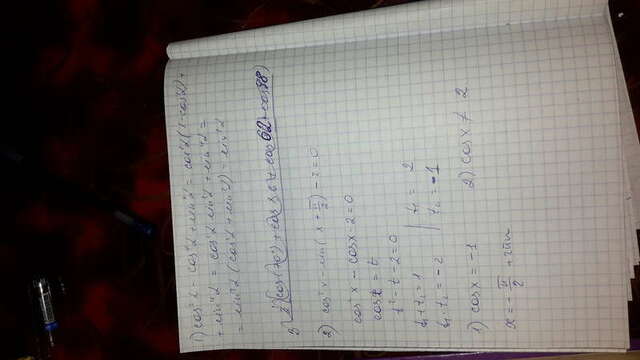 1) cos²α - cos⁴α + sin⁴α = cos²α(1-cos²α) +
+ sin⁴α = cos²α sin²α + sin⁴α =
= sin²α (cos²α + sin²α) = sin²α
3)
2) cos²x - sin(x + π/2) - 2 = 0
cos²x - cosx - 2 = 0
cosx = t
t² - t - 2 = 0
t₁ + t₂ = 1 | t₁ = 2
t₁ · t₂ = -2 | t₂ = -1
1) cosx = -1 2) cosx ≠ 2
x = -π/2 + 2πn